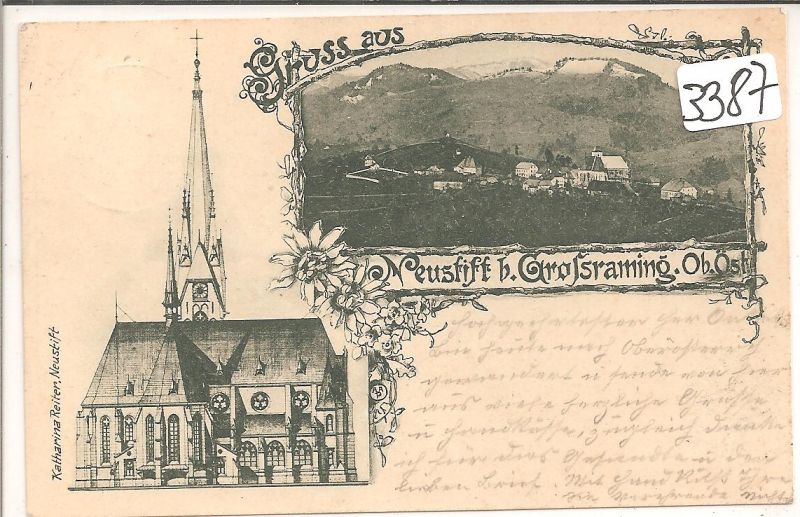 Gruss aus
3387
Neustift b. Grossraming. Ob. Öst
Katharina Reiter, Neustift
hochgeehrtester Herr
Bin heute nach Oberösterreich
gewandert u sende von hier
aus viele herzliche Grüße
u Handküsse, zugleich
ich für das Gesandte u den
lieben Brief. Mit Handkuß Ihre